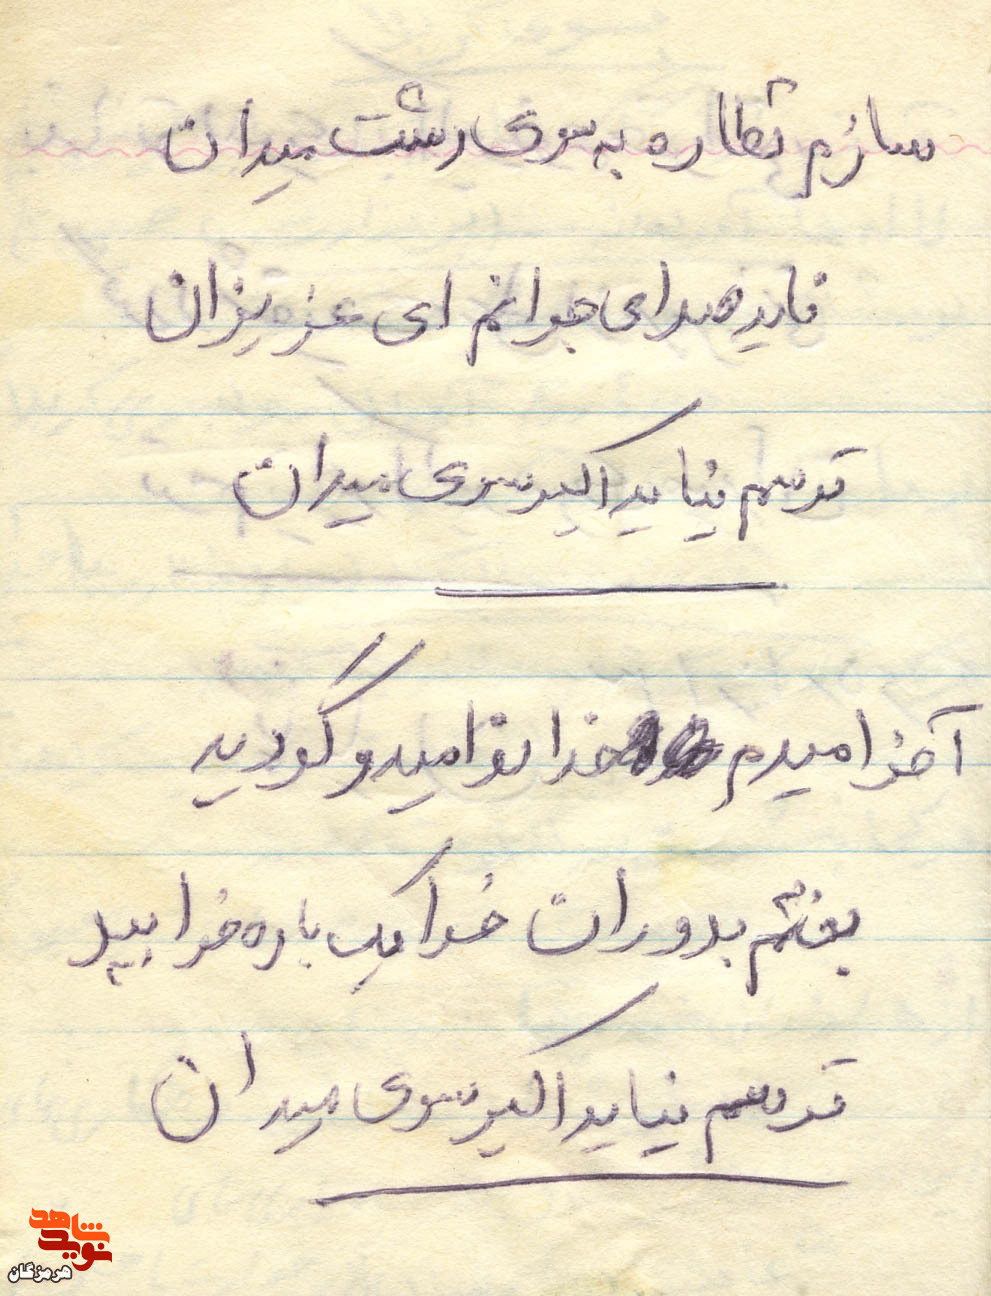 سازم نظاره به سوی دشت میدان
ناید صدای جوانم ای عزیزان
ترسم نیاید اکبر سوی میدان
آخر امیدم خدا نو امید و گردید
بختم بدوران خدا یک باره خوابید
ترسم نیاید اکبر سوی میدان
نوید شاهد
هرمزگان